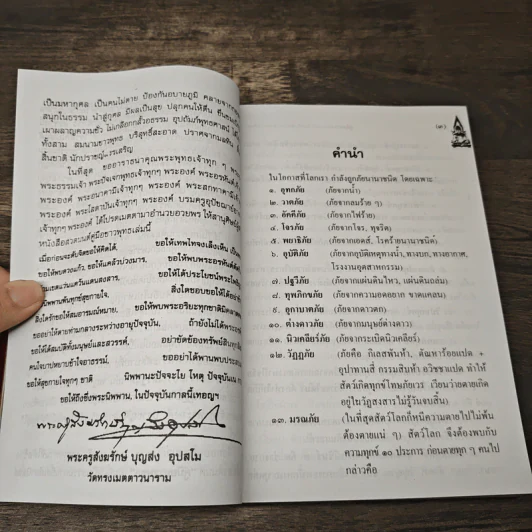 เป็นมหากุศล เป็นคนไม่ตาย ป้องกันอบายภูมิ คลายจาก
สนุกในธรรม นำสู่กุศล มีผลเป็นสุข ปลุกคนให้ตื่น
เผาผลาญความชั่ว ไม่เกลือกกลั้วอธรรม อุปถัมภ์พุทธศาสน์
ทั้งสาม สมนามชาวพุทธ บริสุทธิ์สะอาด ปราศจากมลทิน
สิ้นชาติ นักปราชญ์สรรเสริญ
ในที่สุด ขออาราธนาคุณพระพุทธเจ้าทุก ๆ พระองค์
พระธรรมเจ้า พระปัจเจกพุทธเจ้าทุก ๆ พระองค์ พระอรหันต์
พระองค์ พระอนาคามีเจ้าทุก ๆ พระองค์ พระสกทาคามี
พระองค์ พระโสดาบันเจ้าทุก ๆ พระองค์ บรมครูอุปัชฌาย์
เจ้าทุกๆ พระองค์ ได้โปรดเมตตามาอำนวยอวยพร ให้สานุศิษย์
หนังสือสวดมนต์คู่มือชาวพุทธเล่มนี้
เมื่อก่อนจะดับจิตขอให้คิดได้ ขอให้เทพไทจงเล็งเห็น
ขอให้พบดวงแก้ว ขอให้แคล้วบ่วงมาร ขอให้พบพระอรหันต์
เขตแว่นแคว้นแดนสงสาร ขอให้ได้ประโยชน์พระโพธิ
นิพพานพ้นทุกข์สุขกายใจ สิ่งใดชอบขอให้ได้
สิ่งใดรักขอให้สมอารมณ์หมาย ขอให้พบพระอริยะทุกชาติ
ขออย่าให้ตายท่ามกลางระหว่างอายุปัจจุบัน ถ้ายังไม่ได้พระ
ขอให้ได้สมบัติทั้งมนุษย์และสวรรค์ อย่าขัดข้องทรัพย์สิน
คนใจบาปหยาบช้าใจอาธรรม์ ขออย่าได้พานพบประสบ
ขอให้สุขกายใจทุกๆ ชาติ นิพพานะปัจจะโย โหตุ ปัจจุบันเน
ขอให้ถึงซึ่งพระนิพพาน ในปัจจุบันกาลนี้เทอญฯ
พระครูสังฆรักษ์ บุญส่ง อุปสโม
วัดทรงเมตตวนาราม
(๓)
คำนำ
ในโอกาสที่โลกเรา กำลังถูกภัยนานาชนิด โดยเฉพาะ
๑. อุทกภัย (ภัยจากน้ำ)
๒. วาตภัย (ภัยจากลมร้าย ๆ)
๓. อัคคีภัย (ภัยจากไฟร้าย)
๔. โจรภัย (ภัยจากโจร, ทุจริต)
๕. พยาธิภัย (ภัยจากเอดส์, โรคร้ายนานาชนิด)
๖. อุบัติภัย (ภัยจากอุบัติเหตุทางน้ำ, ทางบก, ทางอากาศ,
โรงงานอุตสาหกรรม)
๗. ปฐวีภัย (ภัยจากแผ่นดินไหว, แผ่นดินถล่ม)
๘. ทุพภิกขภัย (ภัยจากความอดอยาก ขาดแคลน)
๙. อุกาบาตภัย (ภัยจากดาวตก)
๑๐. ต่างดาวภัย (ภัยจากมนุษย์ต่างดาว)
๑๑. นิวเคลียร์ภัย (ภัยจากระเบิดนิวเคลียร์)
๑๒. วัฏภัย (ภัยคือ กิเลสพันห้า, ตัณหาร้อยแปด +
อุปาทานสี่ กรรมสิบห้า อวิชชาแปด ทำให้
สัตว์เกิดทุกข์โทษภัยเวร เวียนว่ายตายเกิด
อยู่ในวัฏสงสารไม่รู้วันจบสิ้น)
๑๓. มรณภัย (ในที่สุดสัตว์โลกก็หนีความตายไปไม่พ้น
ต้องตายแน่ ๆ) สัตว์โลก จึงต้องพบกับ
ความทุกข์ ๑๐ ประการ ก่อนตายทุก ๆ คนไป
กล่าวคือ